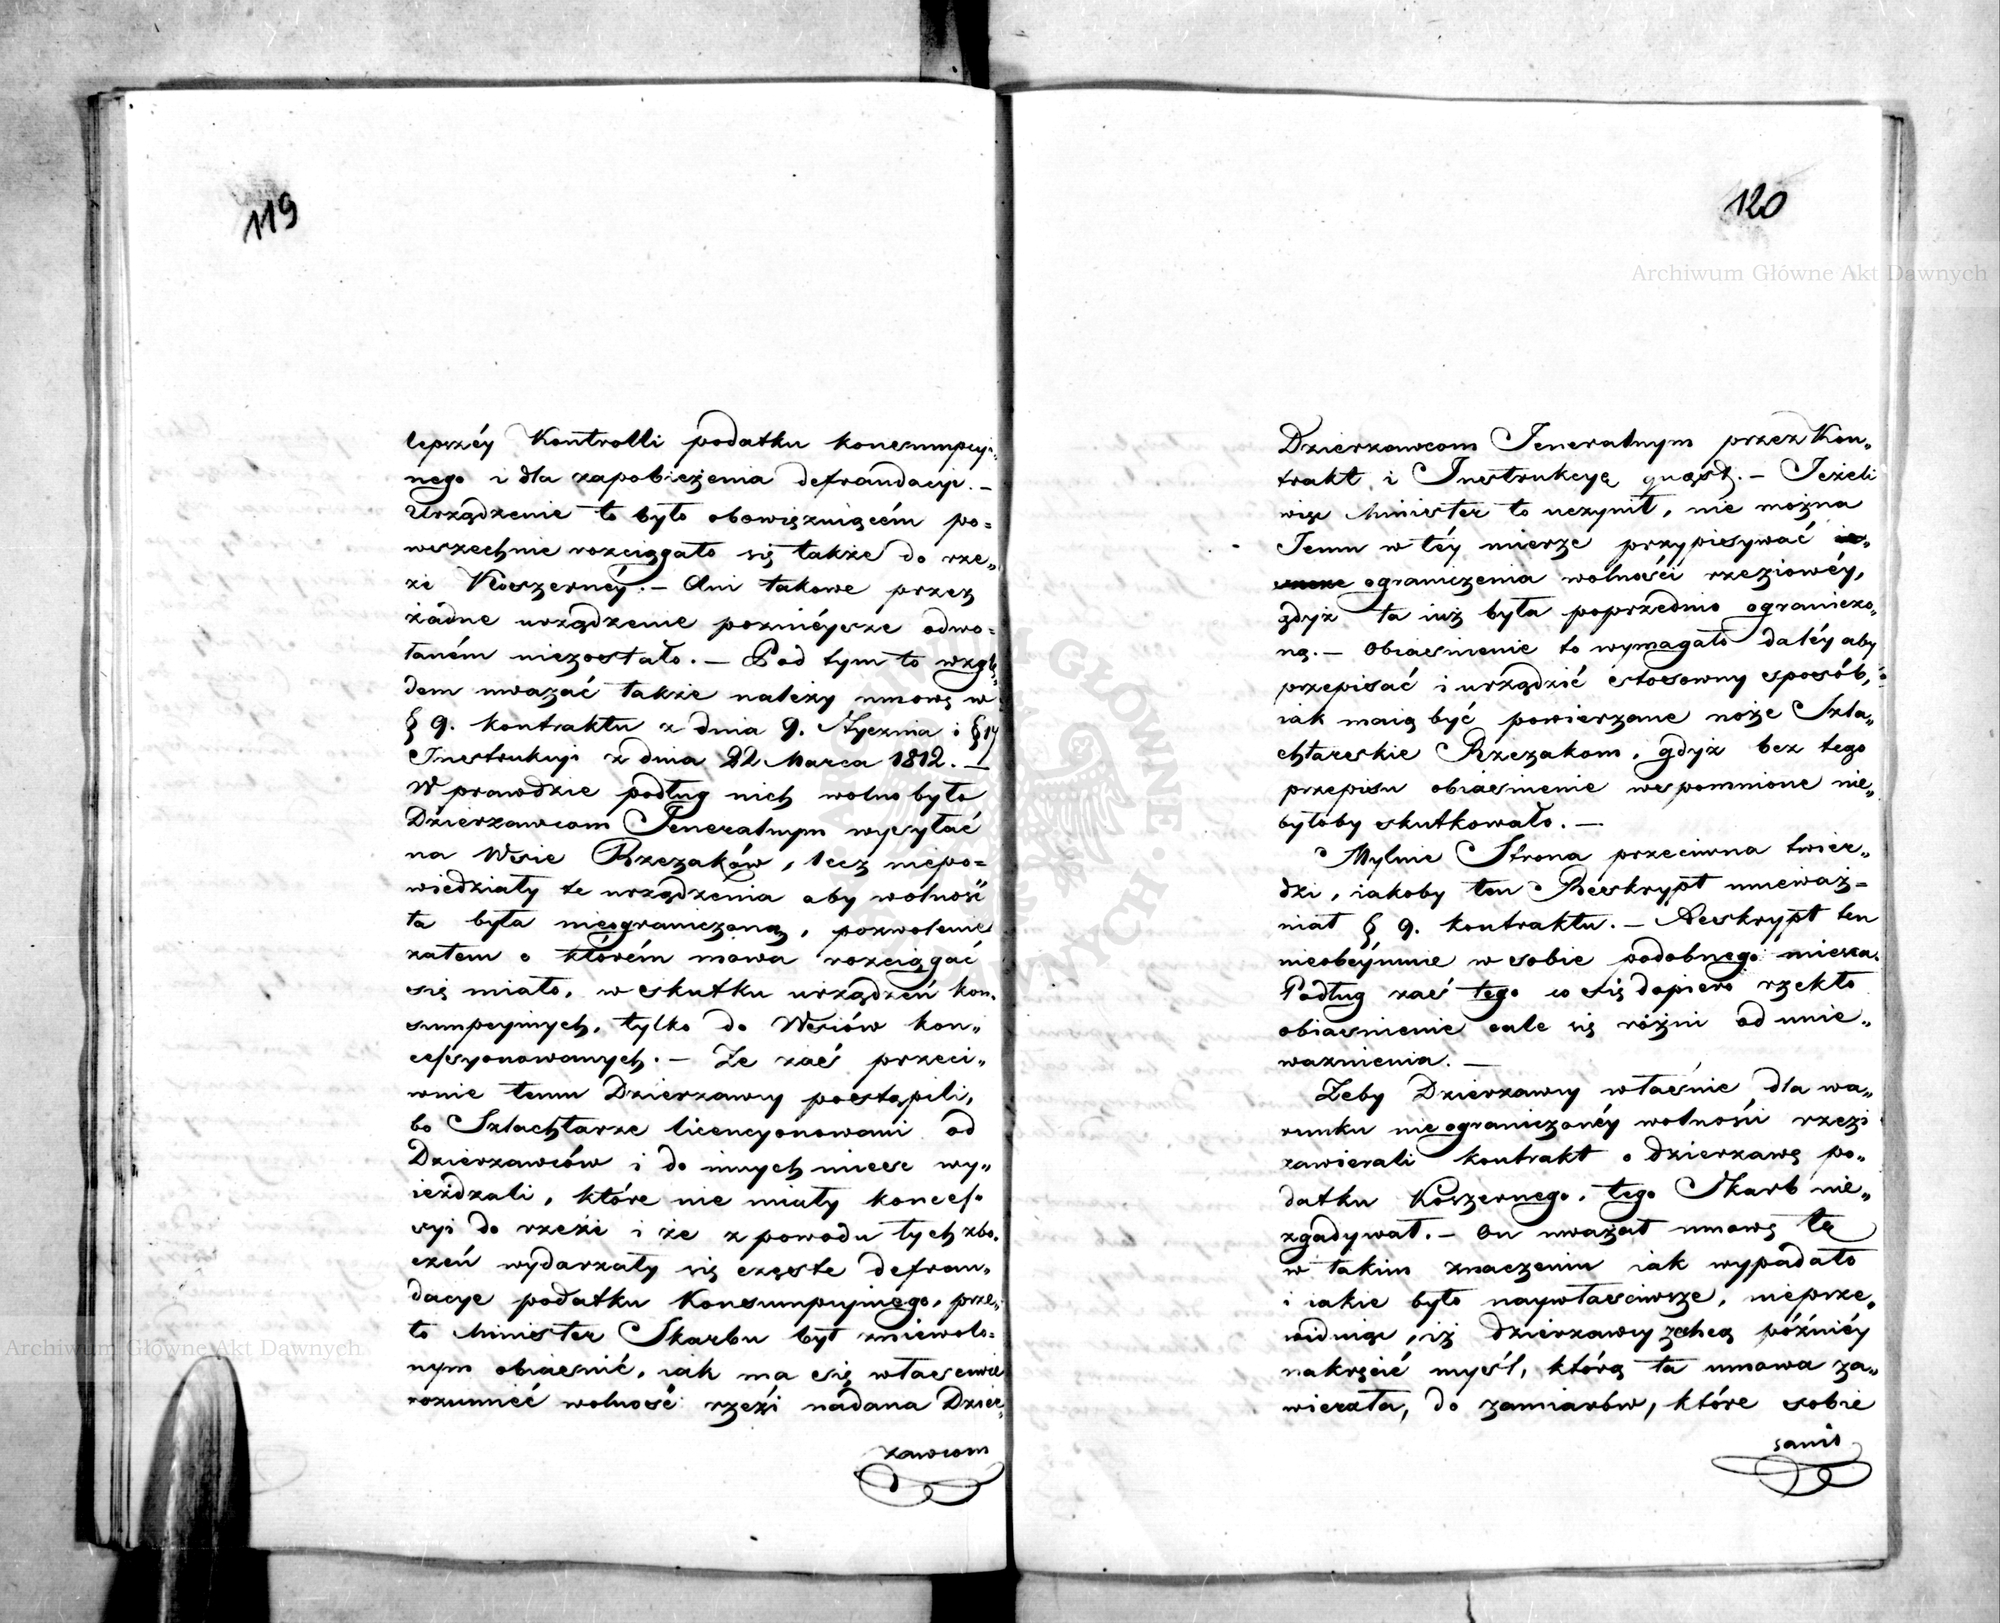 119
lepszéy Kontrolli podatku konsumpcyi„
nego i dla zapobieżenia defraudacyi. –
Urządzenie to było obowięzuiącém po=
wszechnie rozciągało się także do rze„
zi Koszernéy. – Ani takowe przez
żadne urządzenie poznieysze odwo=
łaném niezostało. – Pod tym to wzglę„
dem uważać także należy umowę w
§ 9. kontraktu z dnia 9. Stycznia i § 17
Instrukcyi z dnia 22 Marca 1812. —
W prawdzie podług nich wolno było
Dzierzawcom Jeneralnym wysyłać
na Wsie Rzezaków, lecz niepo=
wiedziały te urządzenia aby wolność
ta była nieograniczoną, pozwolenie
zatem o którém mowa rozciągać
się miało, w skutku urządzeń kon„
sumpcyinych, tylko do Wsiów kon„
cessyonowanych. – Ze zaś przeci„
wnie temu Dzierzawcy postąpili,
bo Szlachtarze licencyonowani od
Dzierzawców i do innych miesc wy„
ieżdzali, które nie miały konces„
syi do rzezi i że z powodu tych zbo„
czeń wydarzały się częste defrau„
dacye podatku Konsumpcyinego, prze„
to Minister Skarbu był zniewolo=
nym obiasnić, iak ma się własciwie
rozumieć wolność rzezi nadana Dzier„
zawcom
120
Dzierzawcom Jeneralnym przez Kon„
trakt i Instrukcyę quaest. – Jeżeli
więc Minister to uczynił, nie można
Jemu w téy mierze przypisywać
ograniczenia wolności rzeziowéy,
gdyż ta iuż była poprzednio ograniczo„
ną. – Obiasnienie to wymagało daléy aby
przepisać i urządzić stosowny sposób,
iak maią być powierzane noże Szla„
chtarskie Rzezakom, gdyż bez tego
przepisu obiasnienie wspomnione nie„
byłoby skutkowało. —
Mylnie Strona przeciwna twier„
dzi, iakoby ten Reskrypt unieważ=
niał § 9. kontraktu. – Reskrypt ten
nieobéymuie w sobie podobnego
Podług zaś tego co się dopiero rzekło
obiasnienie cale się różni od unie„
waznienia. —
Żeby Dzierzawcy właśnie dla wa„
runku nieograniczonéy wolności rzezi
zawierali kontrakt o dzierzawę po„
datku Koszernego, tego Skarb nie„
zgadywał. – On uważał umowę tę
w takim znaczeniu iak wypadało
i iakie było naywłasciwsze, nieprze„
widuiąc, iż dzierzawcy zechcą póżniéy
nakręcić myśl, którą ta umowa za„
wierała, do zamiarów, które sobie
sami
Archiwum Główne Akt Dawnych
Archiwum Główne Akt Dawnych